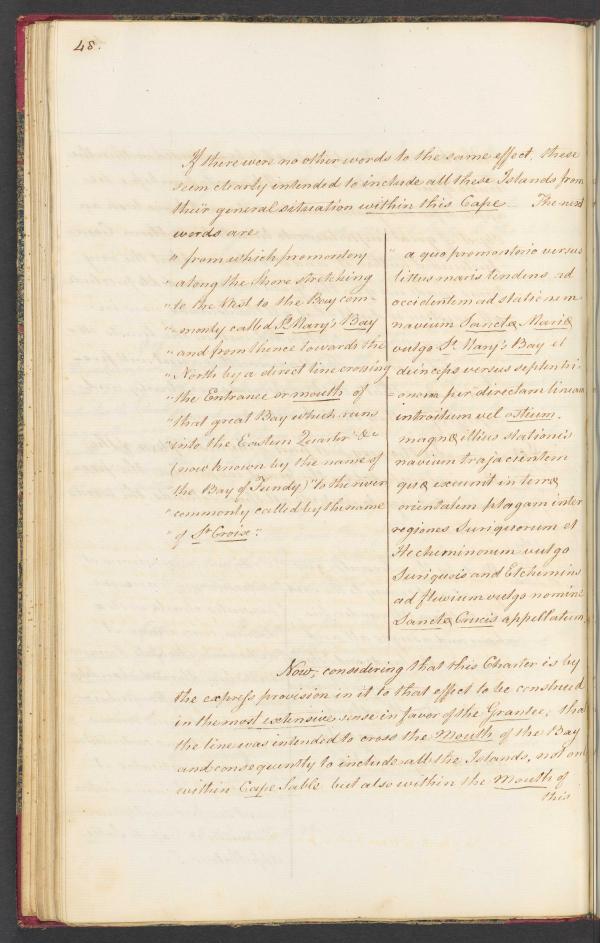 48.
If there were no other words to the same effect, these
seem clearly intended to include all these Islands from
their general situation within this Cape The next
words are
" from which promontory
" along the Shore stretching
" to the West to the Bay com-
"-monly called St Mary's Bay
" and from thence towards the
" North by a direct line crossing
" the Entrance or mouth of
" that great Bay which runs
" into the Eastern Quarter" &c
(now known by the name of
the Bay of Fundy) "to the river
" commonly called by the name
" of St Croix".
" a quo promontorio versus
littus maris tendens ad
occidentem ad stationem
navium Sanctæ Mariæ
vulgo St Mary's Bay et
deinceps versus septentri-
=onem per directam lineam
introitum vel ostium
magnæ illius stationis
navium trajacientem
quæ excurrit in terræ
orientalem plagam inter
regiones Suriquorum et
Stecheminorum vulgo
Suriquois and Etchemins
ad fluvium vulgo nomine
Sanctæ Crucis appellatum
Now, considering that this Charter is by
the express provision in it to that effect to be construed
in the most extensive sense in favor of the Grantee; tha
the line was intended to cross the Mouth of the Bay
and consequently to include all the Islands, not on
within Cape Sable but also within the Mouth of
this